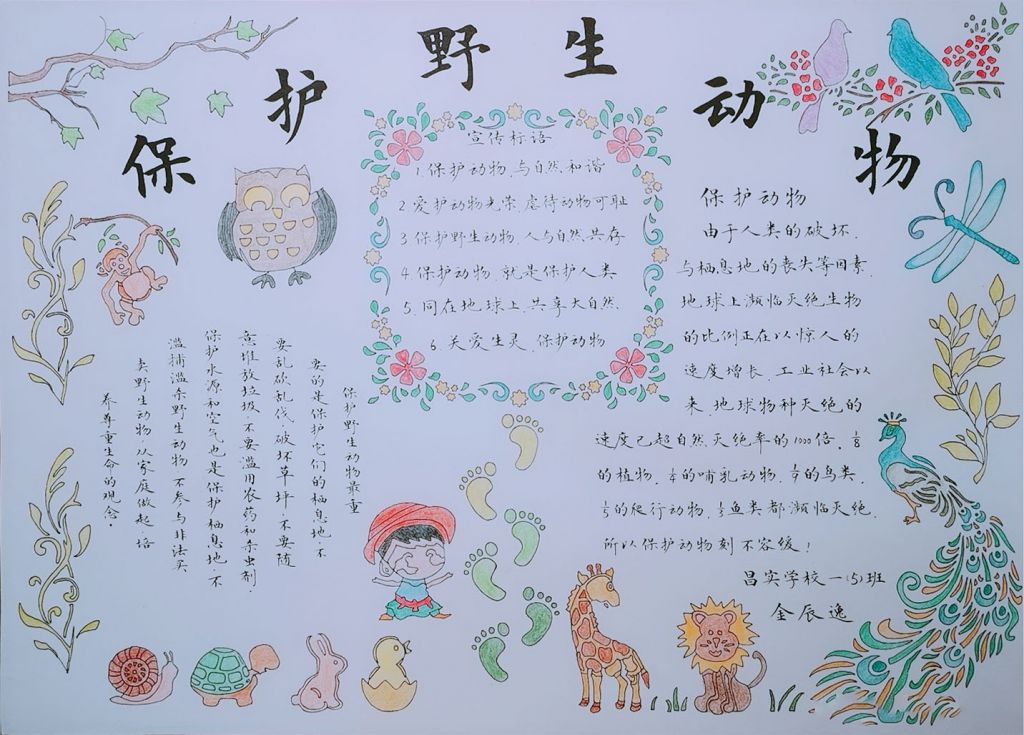 保护野生动物
宣传标语
1.保护动物,与自然和谐
2.爱护动物光荣,虐待动物可耻
3.保护野生动物,人与自然共存
4.保护动物,就是保护人类
5.同在地球上,共享大自然
6.关爱生灵,保护动物
保护野生动物最重
要的是保护它们的栖息地,不
要乱砍乱伐,破坏草坪,不要随
意堆放垃圾,不要滥用农药和杀虫剂.
保护水源和空气也是保护栖息地,不
滥捕滥杀野生动物,不参与非法买
卖野生动物,从家庭做起,培
养尊重生命的观念.
保护动物
由于人类的破坏,
与栖息地的丧失等因素,
地球上濒临灭绝生物
的比例正在以惊人的
速度增长,工业社会以
来,地球物种灭绝的
速度已超自然灭绝率的1000倍.1/8
的植物,1/4的哺乳动物,1/9的鸟类,
1/5的爬行动物,1/3鱼类都濒临灭绝,
所以保护动物刻不容缓!
昌实学校一(5)班
金辰逸